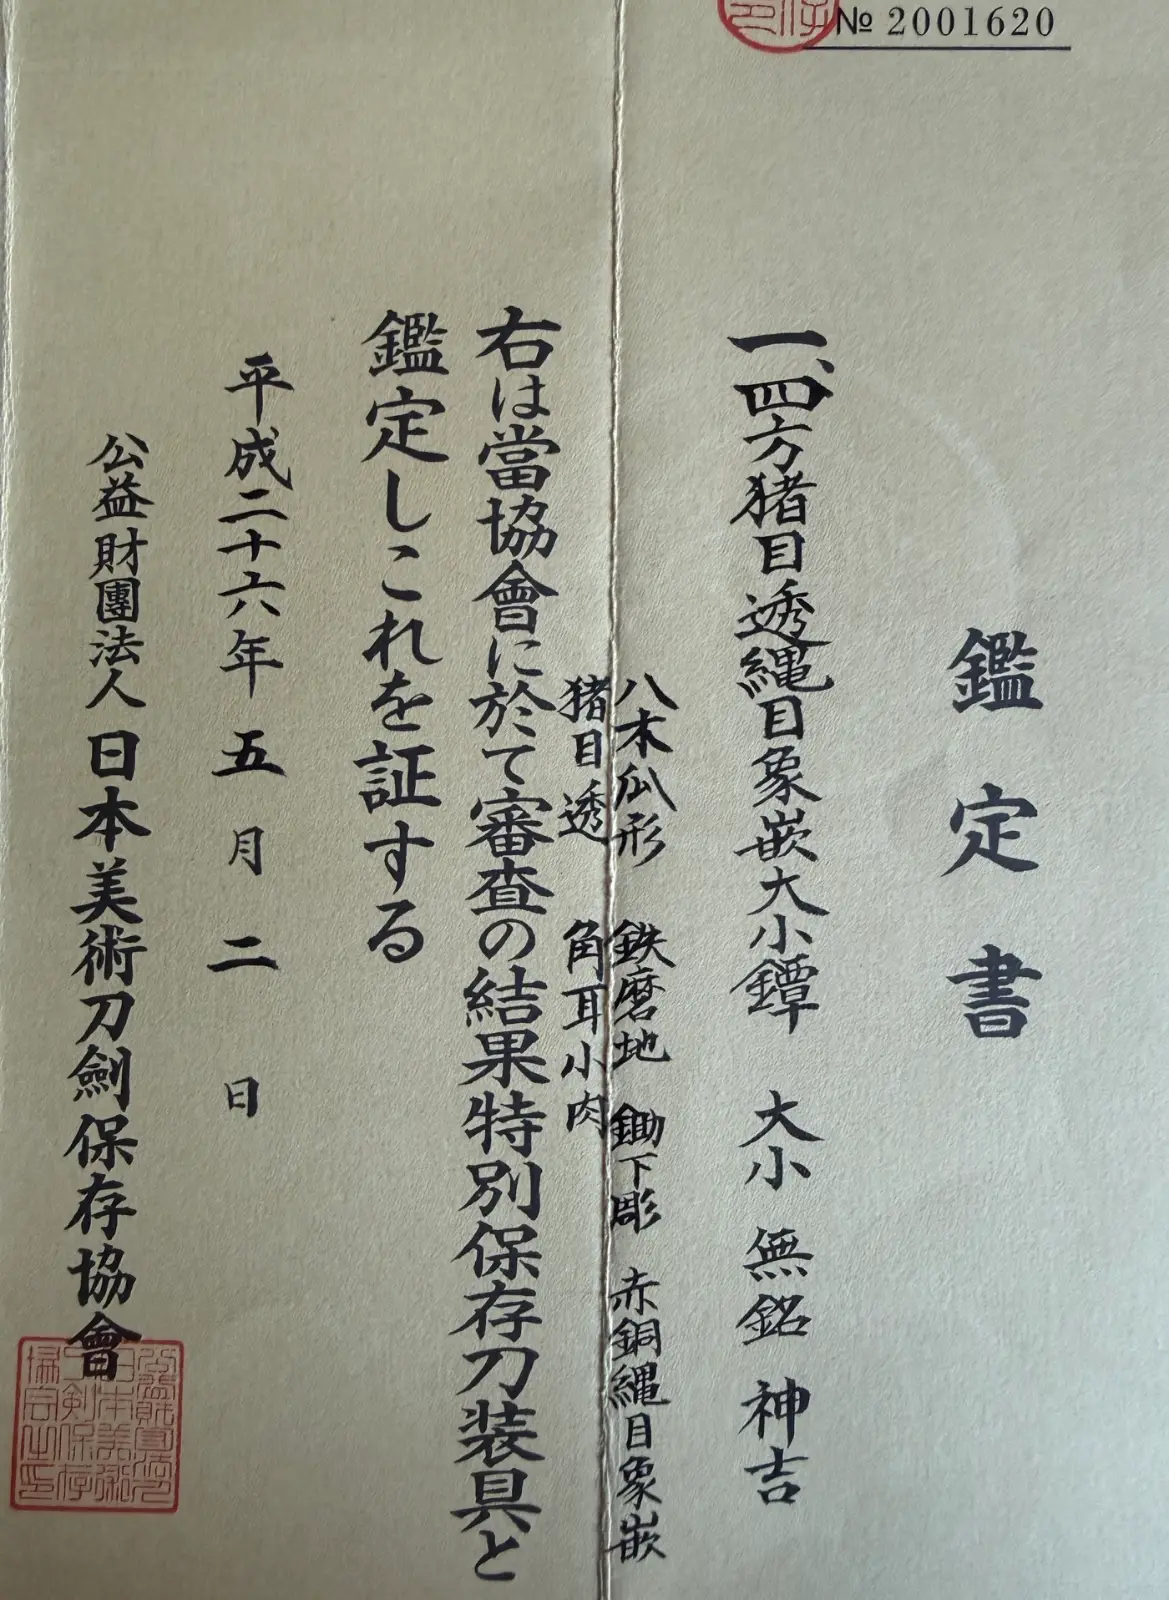 № 2001620
鑑定書
一、四方猪目透縄目象嵌大小鐔 大小 無銘 神吉
八木瓜形 鉄磨地 鋤下彫 赤銅縄目象嵌
猪目透 角耳小肉
右は當協會に於て審査の結果特別保存刀装具と
鑑定しこれを証する
平成二十六年 五月 二日
公益財團法人 日本美術刀劍保存協會